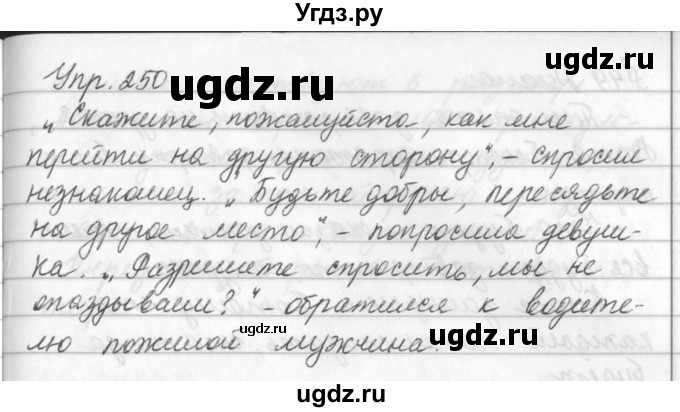 Угдз.ру
Упр. 250
„Скажите, пожалуйста, как мне
перейти на другую сторону“, – спросил
незнакомец. „Будьте добры, пересядьте
на другое место“, – попросила девуш-
ка. „Разрешите спросить, мы не
опаздываем?“ – обратился к водите-
лю пожилой мужчина.
ugdz.ru
ugdz.ru
ugdz.ru
ugdz.ru
ugdz.ru
ugdz.ru